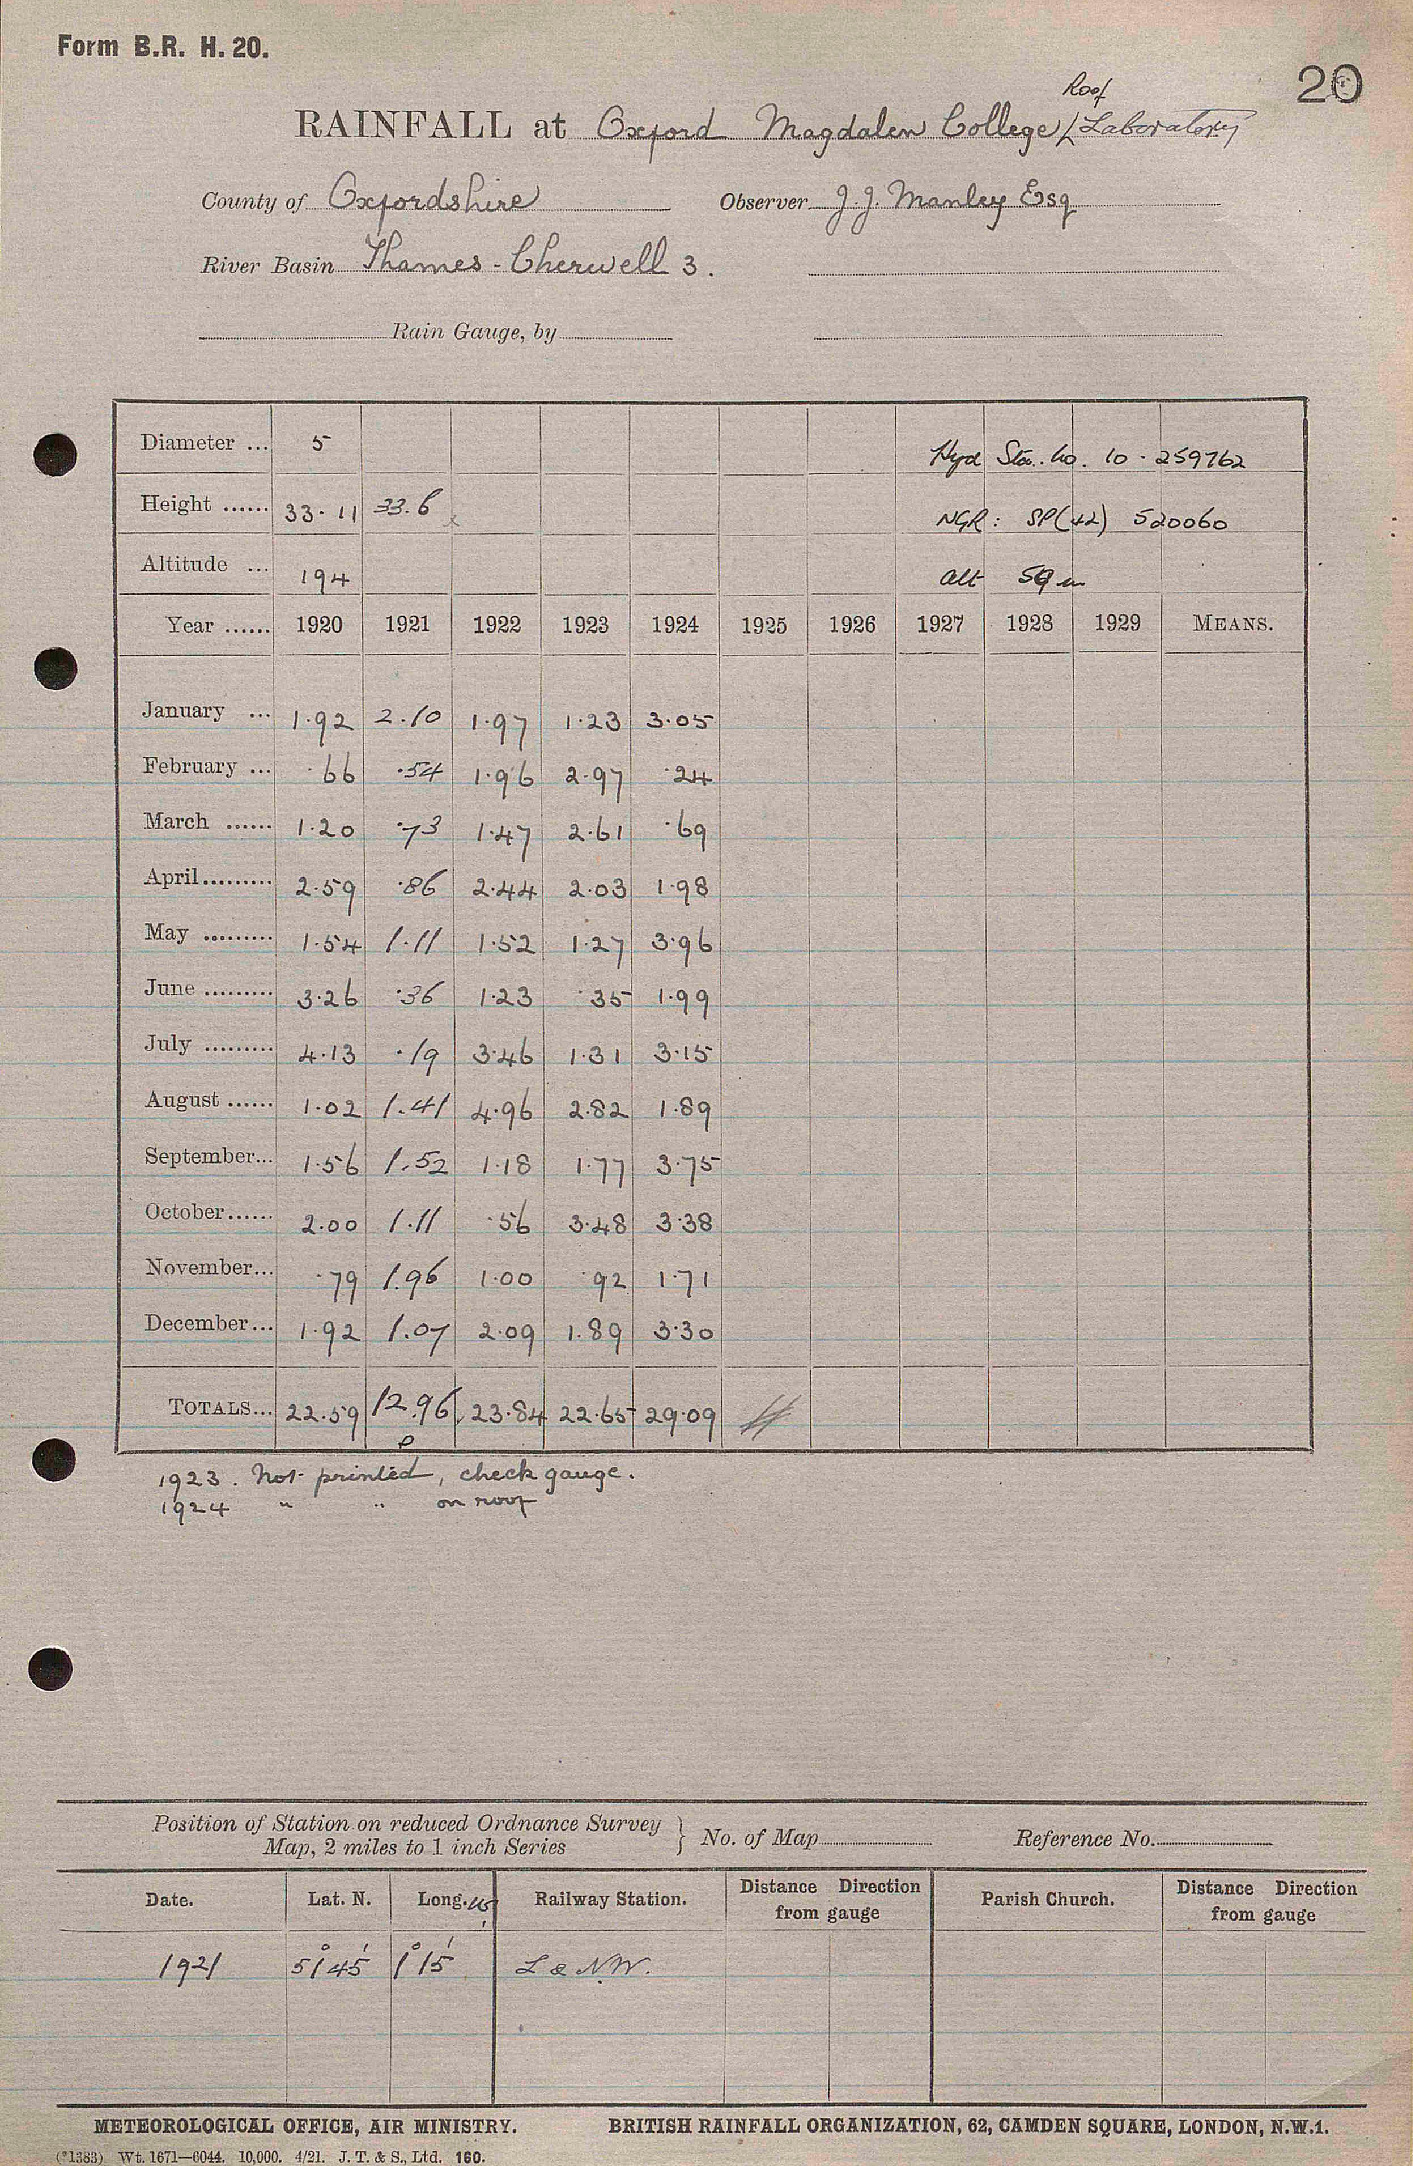 Form B.R. H. 20.
20
Roof
RAINFALL at Oxford Magdalen College / Laboratory
County of Oxfordshire Observer J. J. Manley Esq
River Basin Thames - Cherwell 3.
Rain Gauge, by
Diameter ... 5 Hyd Sta. No. 10 - 259762
Height ...... 33·11 33.6 NGR: SP(42) 520060
Altitude ... 194 alt 59 m
Year ...... 1920 1921 1922 1923 1924 1925 1926 1927 1928 1929 MEANS.
January ... 1·92 2.10 1·97 1·23 3·05
February ... ·66 ·54 1·96 2·97 ·24
March ...... 1·20 ·73 1·47 2·61 ·69
April ......... 2·59 ·86 2·44 2·03 1·98
May ......... 1·54 1.11 1·52 1·27 3·96
June ......... 3·26 ·36 1·23 ·35 1·99
July ......... 4·13 ·19 3·46 1·31 3·15
August ...... 1·02 1.41 4·96 2·82 1·89
September... 1·56 1.52 1·18 1·77 3·75
October...... 2·00 1.11 ·56 3·48 3·38
November... ·79 1.96 1·00 ·92 1·71
December... 1·92 1.07 2·09 1.89 3·30
TOTALS... 22·59 12.96 23·84 22·65 29·09
1923. Not printed, check gauge.
1924 " " on roof
Position of Station on reduced Ordnance Survey
Map, 2 miles to 1 inch Series } No. of Map Reference No.
Date. Lat. N. Long. W. Railway Station. Distance Direction from gauge Parish Church. Distance Direction from gauge
1921 51° 45' 1° 15' L & N.W.
METEOROLOGICAL OFFICE, AIR MINISTRY. BRITISH RAINFALL ORGANIZATION, 62, CAMDEN SQUARE, LONDON, N.W.1.
(*1383) Wt. 1671—6044. 10,000. 4/21. J. T. & S., Ltd. 160.